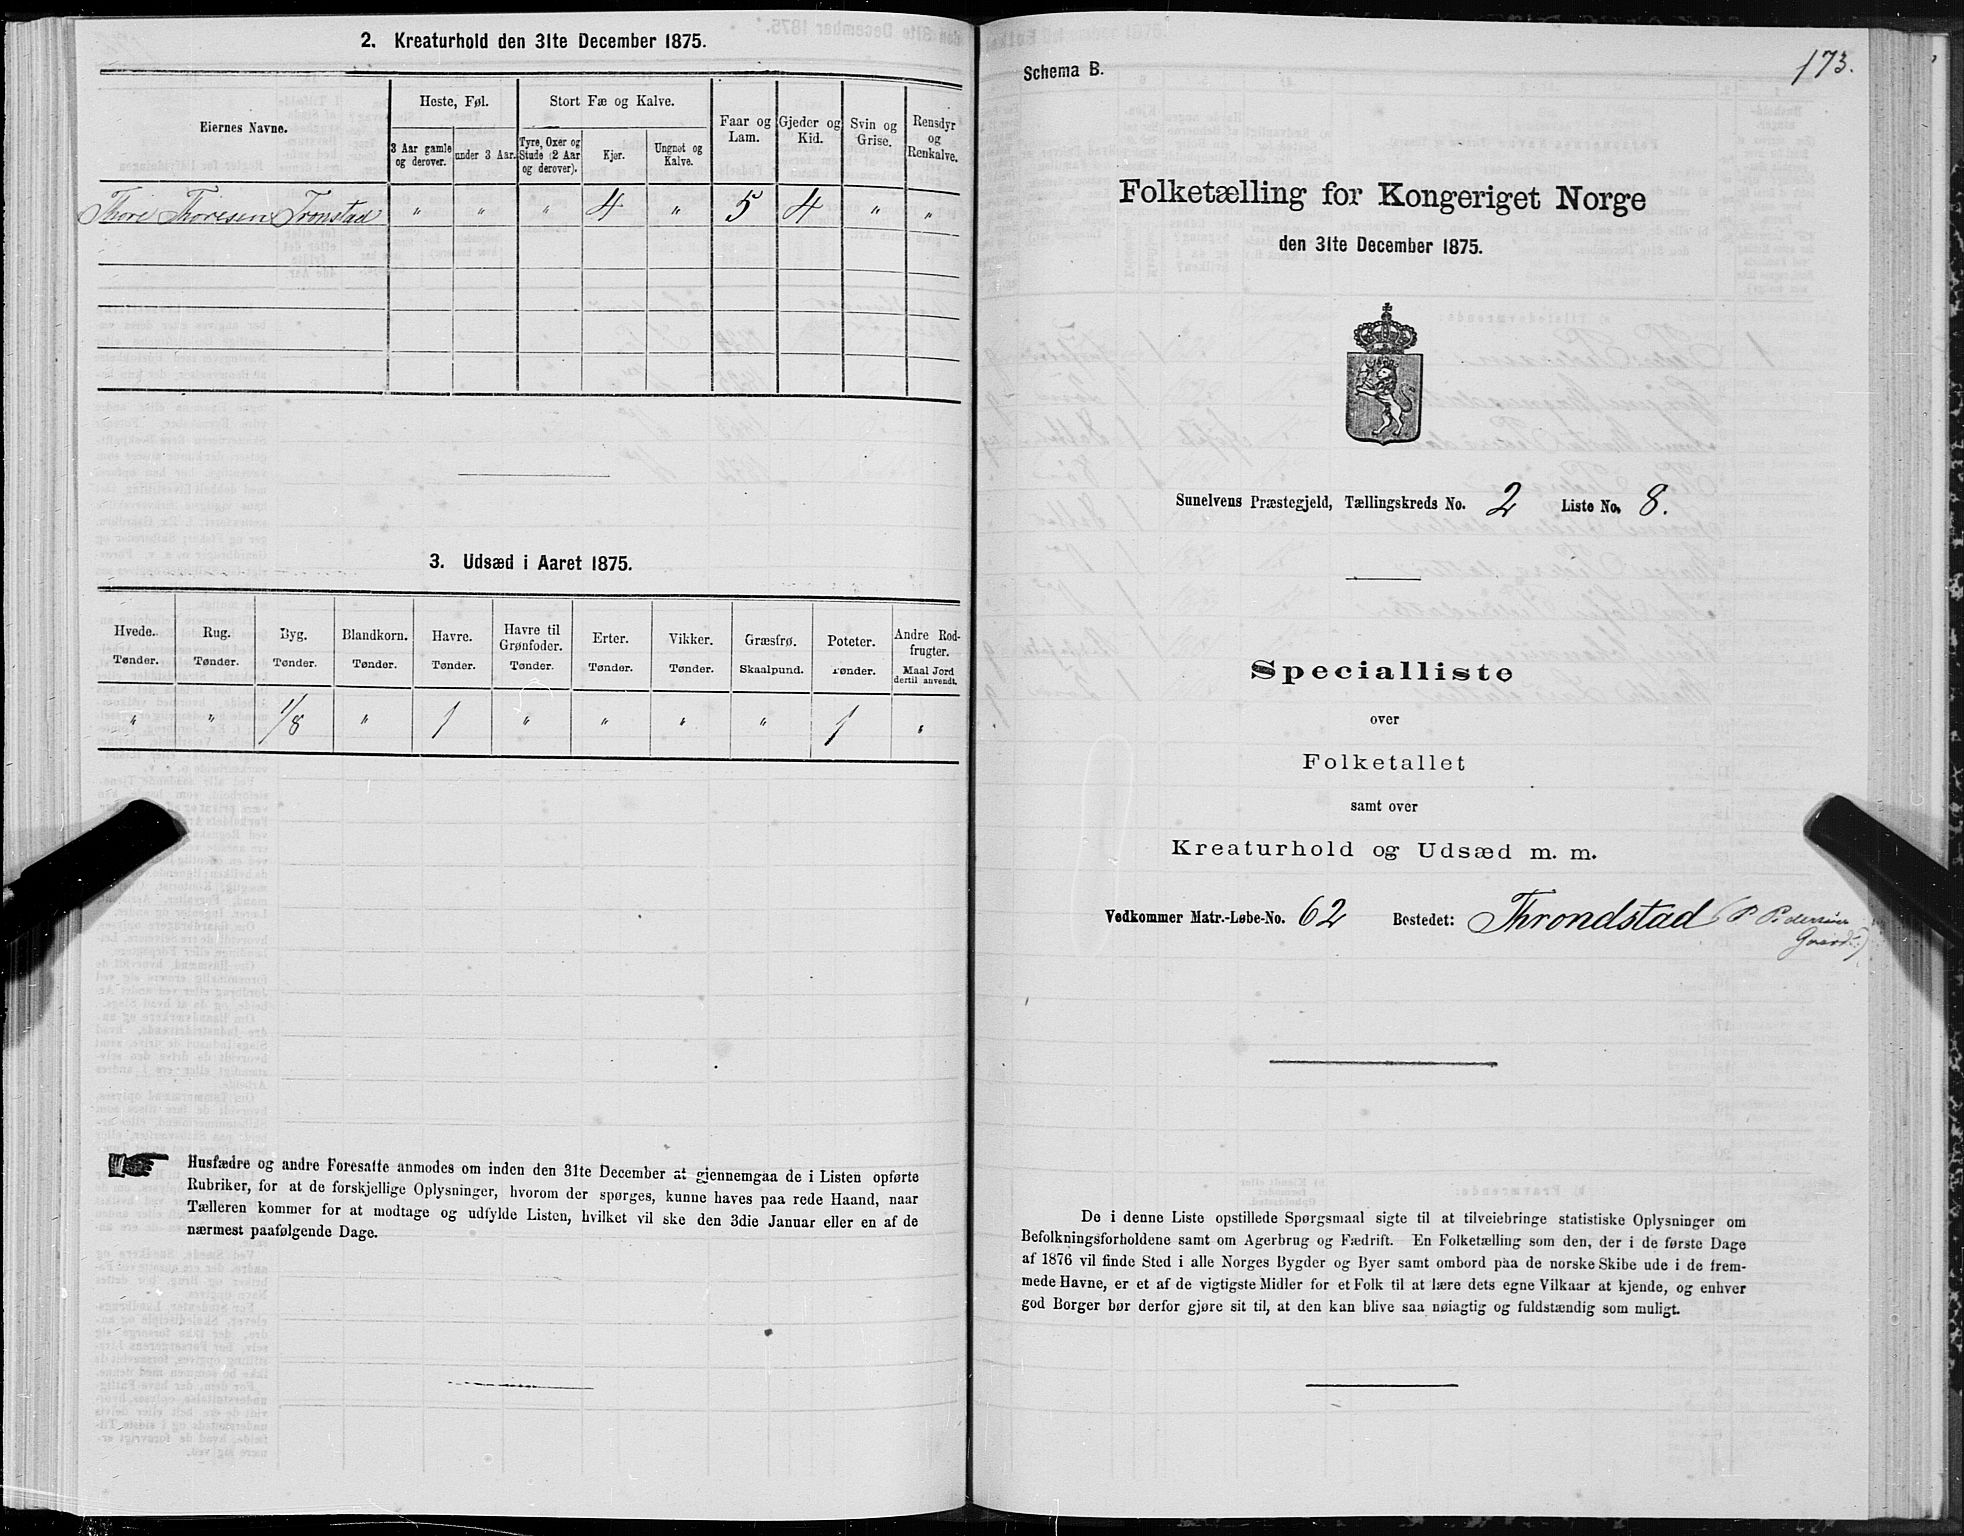 2. Kreaturhold den 31te December 1875.
Eiernes Navne.
Heste, Føl.
Stort Fæ og Kalve.
Faar og Lam.
Gjeder og Kid.
Svin og Grise.
Rensdyr og Renkalve.
3 Aar gamle og derover.
under 3 Aar.
Tyre, Oxer og Stude (2 Aar og derover).
Kjør.
Ungnøt og Kalve.
Thore Thoresen Tronstad " " " 4 " 5 4 " "
3. Udsæd i Aaret 1875.
Hvede. Rug. Byg. Blandkorn. Havre. Havre til Grønfoder. Erter. Vikker. Græsfrø. Poteter. Andre Rodfrugter.
Tønder. Tønder. Tønder. Tønder. Tønder. Tønder. Tønder. Tønder. Skaalpund. Tønder. Maal Jord dertil anvendt.
" " 1/8 " 1 " " " " 1 "
Husfædre og andre Foresatte anmodes om inden den 31te December at gjennemgaa de i Listen opførte
Rubriker, for at de forskjellige Oplysninger, hvorom der spørges, kunne haves paa rede Haand, naar
Tælleren kommer for at modtage og udfylde Listen, hvilket vil ske den 3die Januar eller en af de
nærmest paafølgende Dage.
Schema B.
173.
Folketælling for Kongeriget Norge
den 31te December 1875.
Sunelvens Præstegjeld, Tællingskreds No. 2 Liste No. 8.
Specialliste
over
Folketallet
samt over
Kreaturhold og Udsæd m. m.
Vedkommer Matr.-Løbe-No. 62 Bostedet: Throndstad (P Pedersens
Gaard)
De i denne Liste opstillede Spørgsmaal sigte til at tilveiebringe statistiske Oplysninger om
Befolkningsforholdene samt om Agerbrug og Fædrift. En Folketælling som den, der i de første Dage
af 1876 vil finde Sted i alle Norges Bygder og Byer samt ombord paa de norske Skibe ude i de frem-
mede Havne, er et af de vigtigste Midler for et Folk til at lære dets egne Vilkaar at kjende, og enhver
god Borger bør derfor gjøre sit til, at den kan blive saa nøiagtig og fuldstændig som muligt.